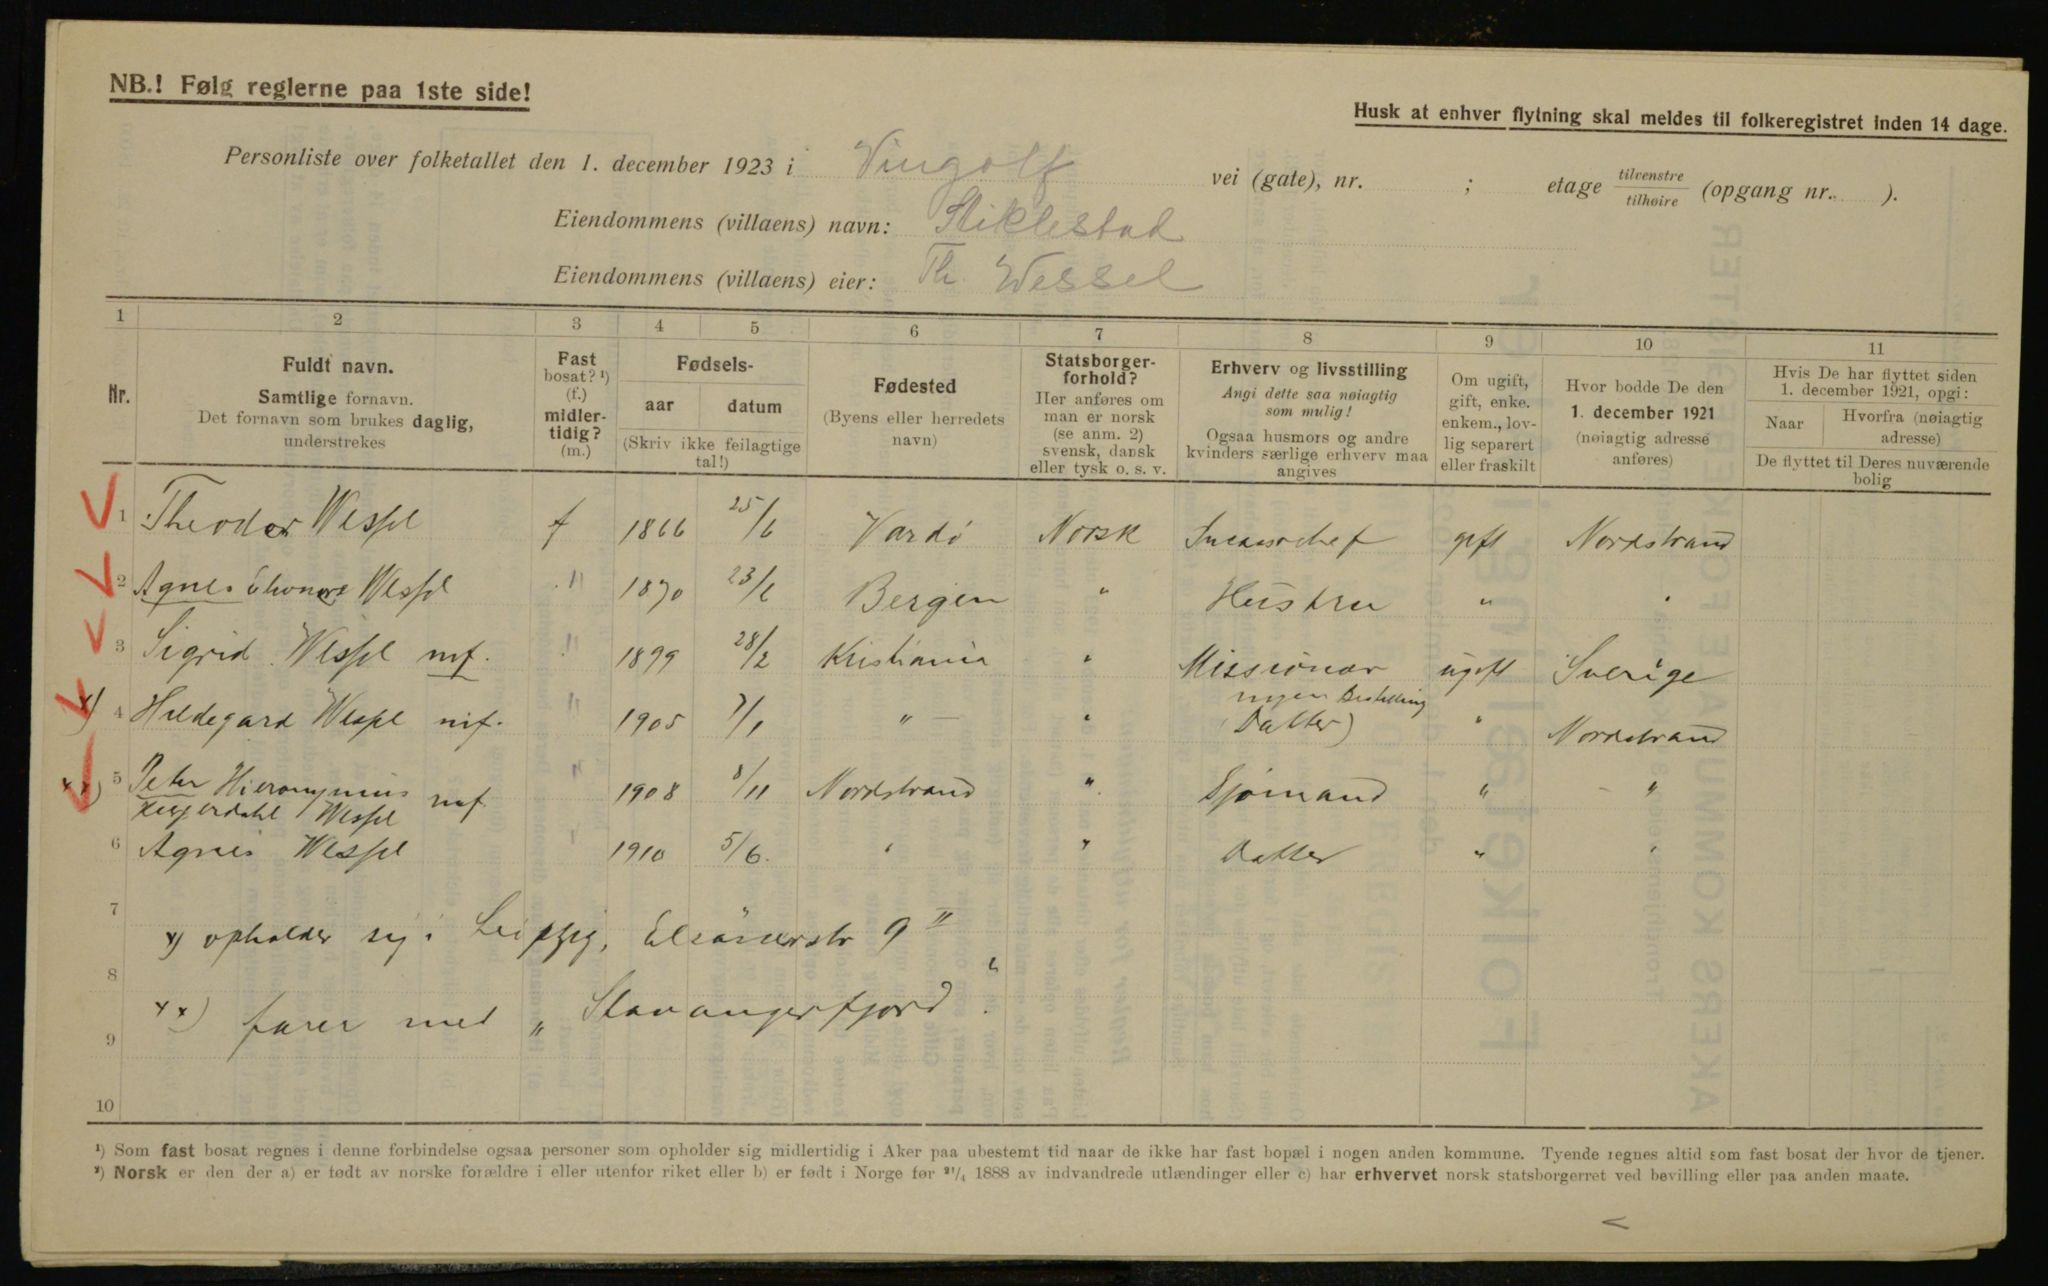 NB.! Følg reglerne paa 1ste side!
Husk at enhver flytning skal meldes til folkeregistret inden 14 dage.
Personliste over folketallet den 1. december 1923 i Vingolf vei (gate), nr. ; etage tilvenstre / tilhøire (opgang nr. ).
Eiendommens (villaens) navn: Stiklestad
Eiendommens (villaens) eier: Th. Wessel
1 2 3 4 5 6 7 8 9 10 11
Nr.
Fuldt navn.
Samtlige fornavn.
Det fornavn som brukes daglig,
understrekes
Fast
bosat? ¹)
(f.)
midler-
tidig?
(m.)
Fødsels-
aar datum
(Skriv ikke feilagtige
tal!)
Fødested
(Byens eller herredets
navn)
Statsborger-
forhold?
Her anføres om
man er norsk
(se anm. 2)
svensk, dansk
eller tysk o. s. v.
Erhverv og livsstilling
Angi dette saa nøiagtig
som mulig!
Ogsaa husmors og andre
kvinders særlige erhverv maa
angives
Om ugift,
gift, enke.
enkem., lov-
lig separert
eller fraskilt
Hvor bodde De den
1. december 1921
(nøiagtig adresse
anføres)
Hvis De har flyttet siden
1. december 1921, opgi:
Naar Hvorfra (nøiagtig
adresse)
De flyttet til Deres nuværende
bolig
1 Theodor Wessel f 1866 25/6 Vardø Norsk gift Nordstrand
2 Agnes Wessel " 1870 23/2 Bergen " Hustru " "
3 Sigrid Wessel mf. " 1899 28/2 Kristiania " Missionær ugift Sverige
ingen Bestilling
4 Hildegard Wessel mf. " 1905 7/1 " — " (Datter) " Nordstrand
x)
5 Peter Hieronymus mf. " 1908 8/11 Nordstrand " Sjømand " — "
xx) Heyerdahl Wessel
6 Agnes Wessel " 1910 5/6. " " Datter " "
7
x) opholder sig i Leipzig, 9 II
8
xx) farer med „Stavangerfjord".
9
10
¹) Som fast bosat regnes i denne forbindelse ogsaa personer som opholder sig midlertidig i Aker paa ubestemt tid naar de ikke har fast bopæl i nogen anden kommune. Tyende regnes altid som fast bosat der hvor de tjener.
²) Norsk er den der a) er født av norske forældre i eller utenfor riket eller b) er født i Norge før 21/4 1888 av indvandrede utlændinger eller c) har erhvervet norsk statsborgerret ved bevilling eller paa anden maate.